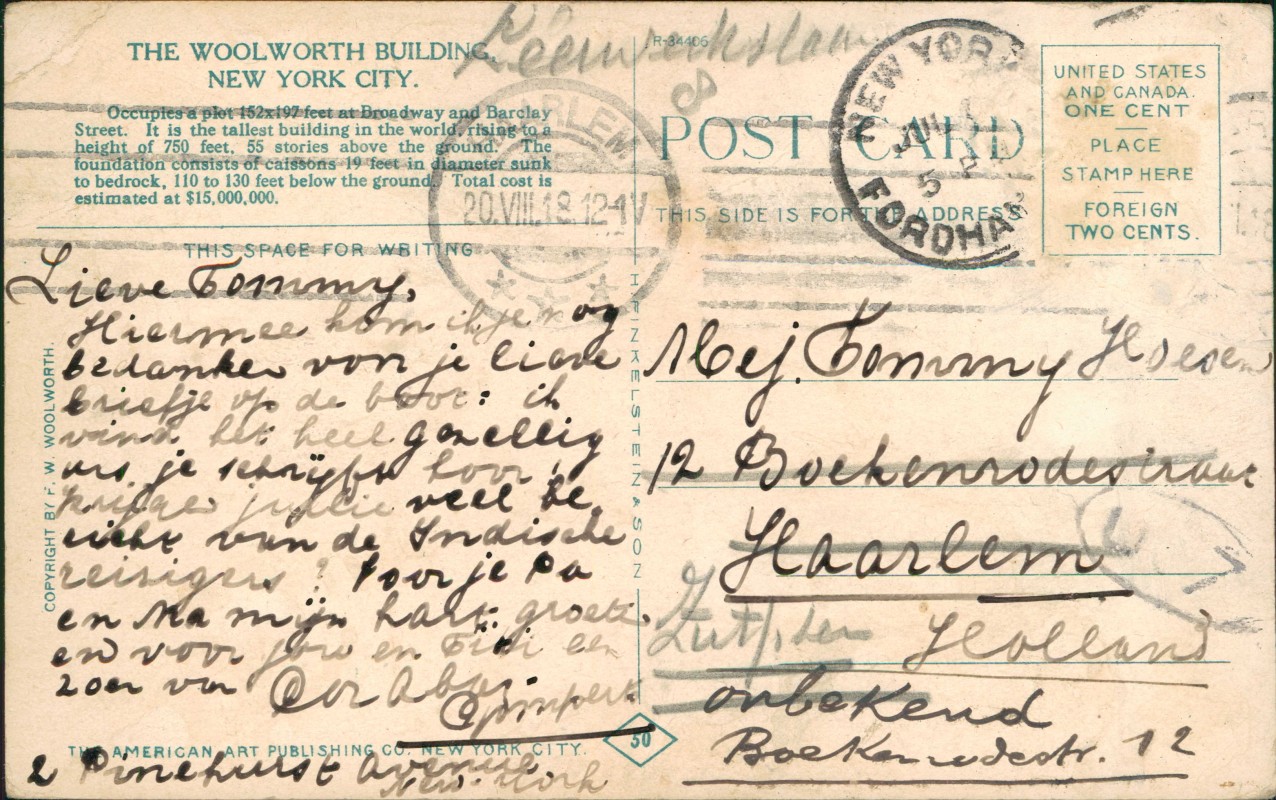 THE WOOLWORTH BUILDING,
NEW YORK CITY.
Occupies a plot 152x197 feet at Broadway and Barclay
Street. It is the tallest building in the world, rising to a
height of 750 feet, 55 stories above the ground. The
foundation consists of caissons 19 feet in diameter sunk
to bedrock, 110 to 130 feet below the ground. Total cost is
estimated at $15,000,000.
THIS SPACE FOR WRITING
Lieve Tommy,
Hiermee kom ik je nog
bedanken voor je lieve
briefje op de boot: ik
vind het heel gezellig
als je schrijft hoor,
krijgen jullie veel be
richt van de Indische
reizigers? Voor je Pa
en Ma mijn hart. groete
en voor jou en een
zoen van Cor
Gompertz
2 Pinehurst Avenue
New-York
COPYRIGHT BY F. W. WOOLWORTH.
THE AMERICAN ART PUBLISHING CO. NEW YORK CITY.
H FINKELSTEIN & SON
50
R-34406
Leeuwerikslaan
8
HAARLEM
20.VIII.18.12-1V
POST CARD
THIS SIDE IS FOR THE ADDRESS
NEW YORK
JUL
5 P
FORDHAM
UNITED STATES
AND CANADA.
ONE CENT
PLACE
STAMP HERE
FOREIGN
TWO CENTS.
Mej. Tommy
12 Boekenrodestraat
Haarlem
Zutphen
Holland
onbekend
Boekenrodestr. 12